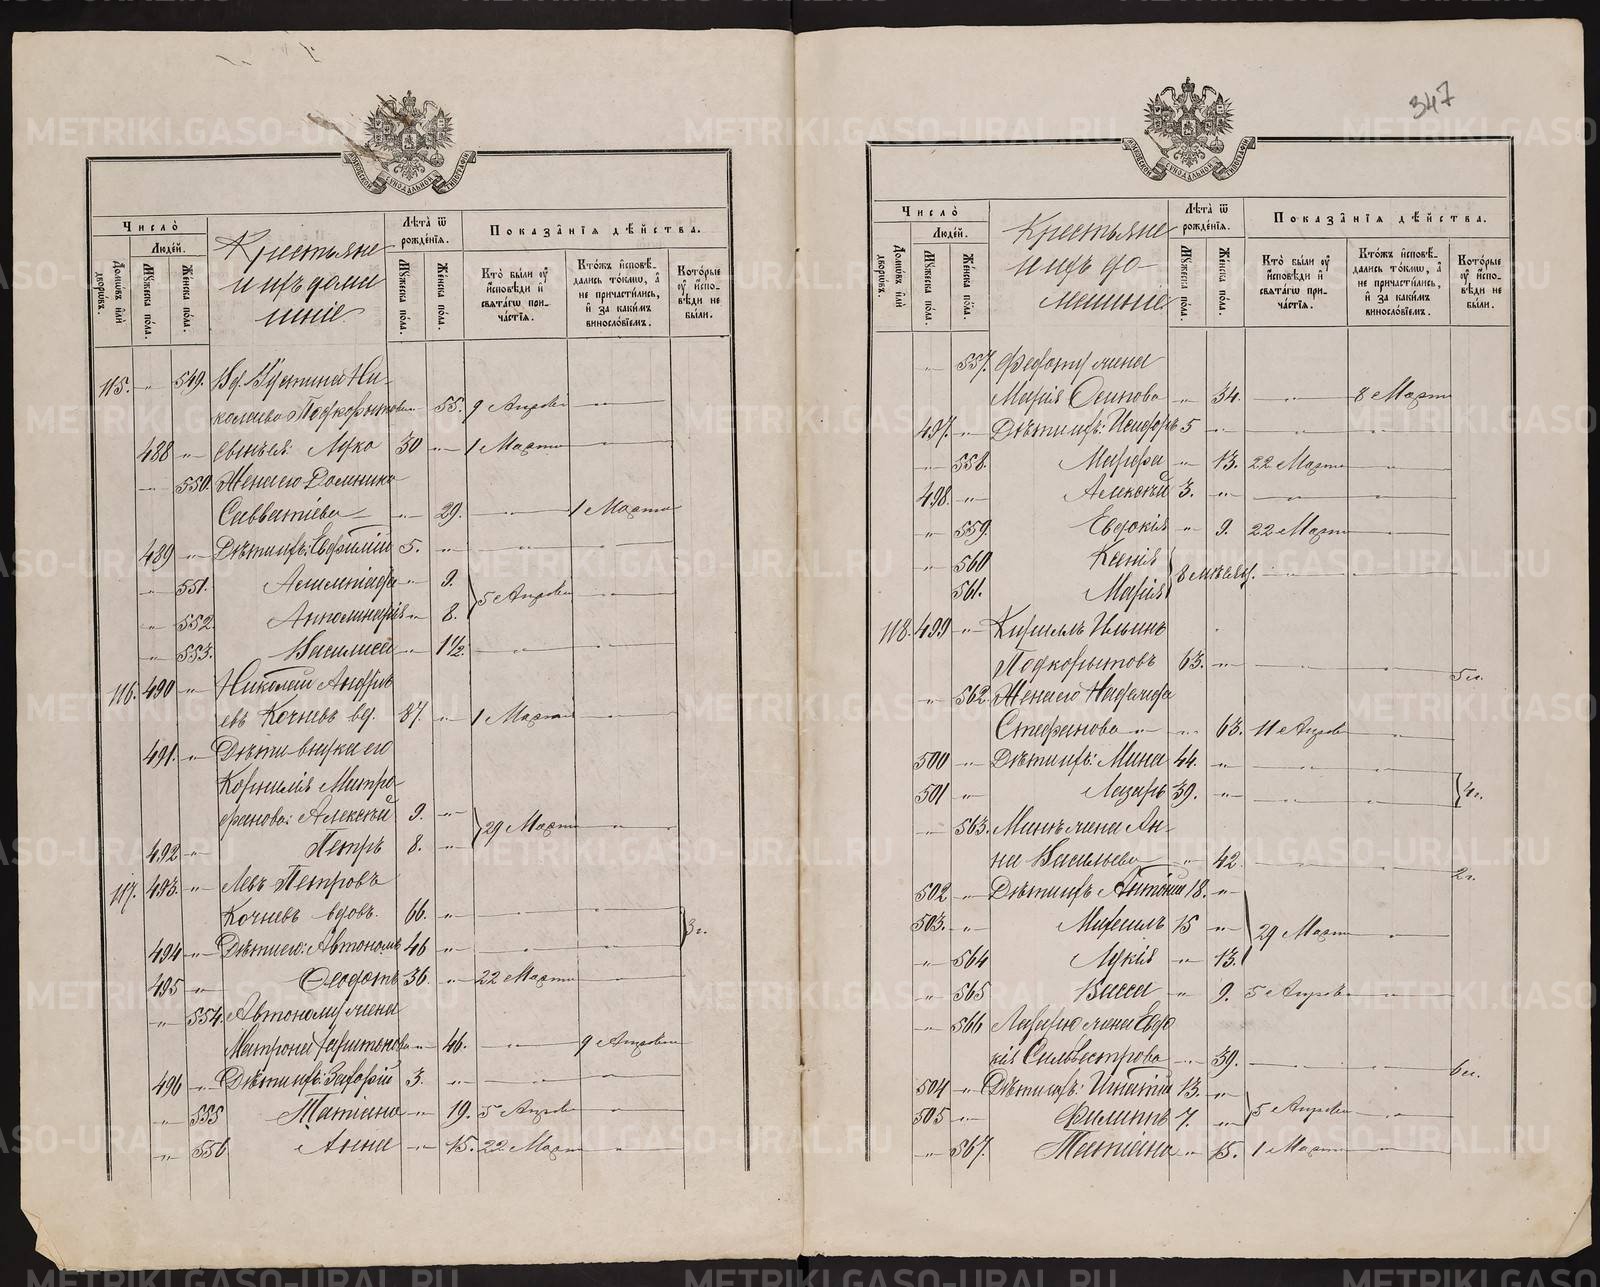 347
Число̀
Людей.
Домѡвъ илѝ дворѡвъ.
Мꙋжеска пола.
Женска пола.
Крестьяне
и ихъ дома
шніе
Лѣта̀ ѿ рожденїѧ.
Мꙋжеска пола.
Женска пола.
Показанїѧ дѣйства.
Кто̀ были ᲂу҆ исповѣди и҆ свѧтагѡ причастїѧ.
Ктожъ исповѣдались токмѡ, а҆ не причастились, и҆ за какимъ винословїемъ.
Которые ᲂу҆ исповѣди не были.
115. „ 549. Вд. Устинья Ни-
колаева Подкорытова „ 55. 9 Апрѣля „
488 „ Сынъ ея: Лука 30 „ 1 Марта „
„ 550. Жена его Домника
Савватіева „ 29. „ 1 Марта
489 „ Дѣти ихъ: Евфимій 5. „ „ „
„ 551. „ 9.
5 Апрѣля „
„ 552. Апполинарія „ 8.
„ 553. Василиса „ 1½. „ „
116. 490 „ Николай Андре
евъ Кочневъ вд. 87. „ 1 Марта „
491. „ Дѣти внука его
Корнилія Митро
фанова: Алексѣй 9. „
29 Марта „
492 „ Петръ 8. „
117. 493. „ Левъ Петровъ
Кочневъ вдовъ. 66. „ „ „
3 г.
494 „ Дѣти его: Автономъ 46 „ „ „
495 „ Ѳеодотъ 36. „ 22 Марта „
„ 554. Автонома жена
Матрона Харитонова „ 46. „ 9 Апрѣля
496 „ Дѣти ихъ: Захарій 3. „ „ „
„ 555 Татіана „ 19. 5 Апрѣля „
„ 556 Анна „ 15. 22 Марта „
Число̀
Людей.
Домѡвъ илѝ дворѡвъ.
Мꙋжеска пола.
Женска пола.
Крестьяне
и ихъ до-
машніе
Лѣта̀ ѿ рожденїѧ.
Мꙋжеска пола.
Женска пола.
Показанїѧ дѣйства.
Кто̀ были ᲂу҆ исповѣди и҆ свѧтагѡ причастїѧ.
Ктожъ исповѣдались токмѡ, а҆ не причастились, и҆ за какимъ винословїемъ.
Которые ᲂу҆ исповѣди не были.
„ 557. Федота жена
Марія Осипова „ 34. „ 8 Марта
497. „ Дѣти ихъ: Исидоръ 5 „ „ „
„ 558. Марфа „ 13. 22 Марта „
498. „ Алексѣй 3. „ „ „
„ 559. Евдокія „ 9. 22 Марта „
„ 560 Ксенія
8 мѣсяц. „ „
„ 561. Марія
118. 499 „ Кириллъ Ильинъ
Подкорытовъ 63. „ „ „ 5 г.
„ 562 Жена его
Стефанова „ 63. 11 Апрѣля „
500 „ Дѣти ихъ: Мина 44. „ „ „
4 г.
501 „ Лазарь 39. „ „ „
„ 563. Мины жена Ан-
на Васильева „ 42. „ „ 2 г.
502 „ Дѣти ихъ Антоній 18. „
503. „ Михаилъ 15 „ 29 Марта „
„ 564 Лукія „ 13.
„ 565 Васса „ 9. 5 Апрѣля „
„ 566 Лазаря жена Евдо
кія Сильвестрова „ 39. „ „ 6 г.
504 „ Дѣти ихъ: Игнатій 13. „
5 Апрѣля „
505 „ Филиппъ 7. „
„ 567. Татіана „ 15. 1 Марта „
METRIKI.GASO-URAL.RU